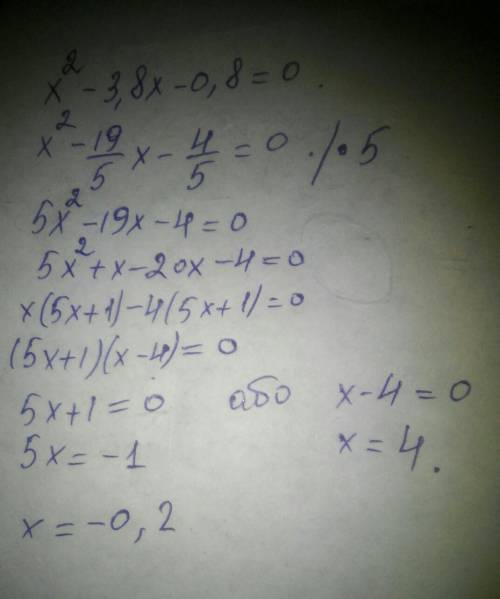 x² - 3,8x - 0,8 = 0.
x² - 19/5 x - 4/5 = 0 ./·5
5x² - 19x - 4 = 0
5x² + x - 20x - 4 = 0
x(5x+1) - 4(5x+1) = 0
(5x+1)(x-4) = 0
5x+1 = 0 або x-4 = 0
5x = -1 x = 4.
x = -0,2